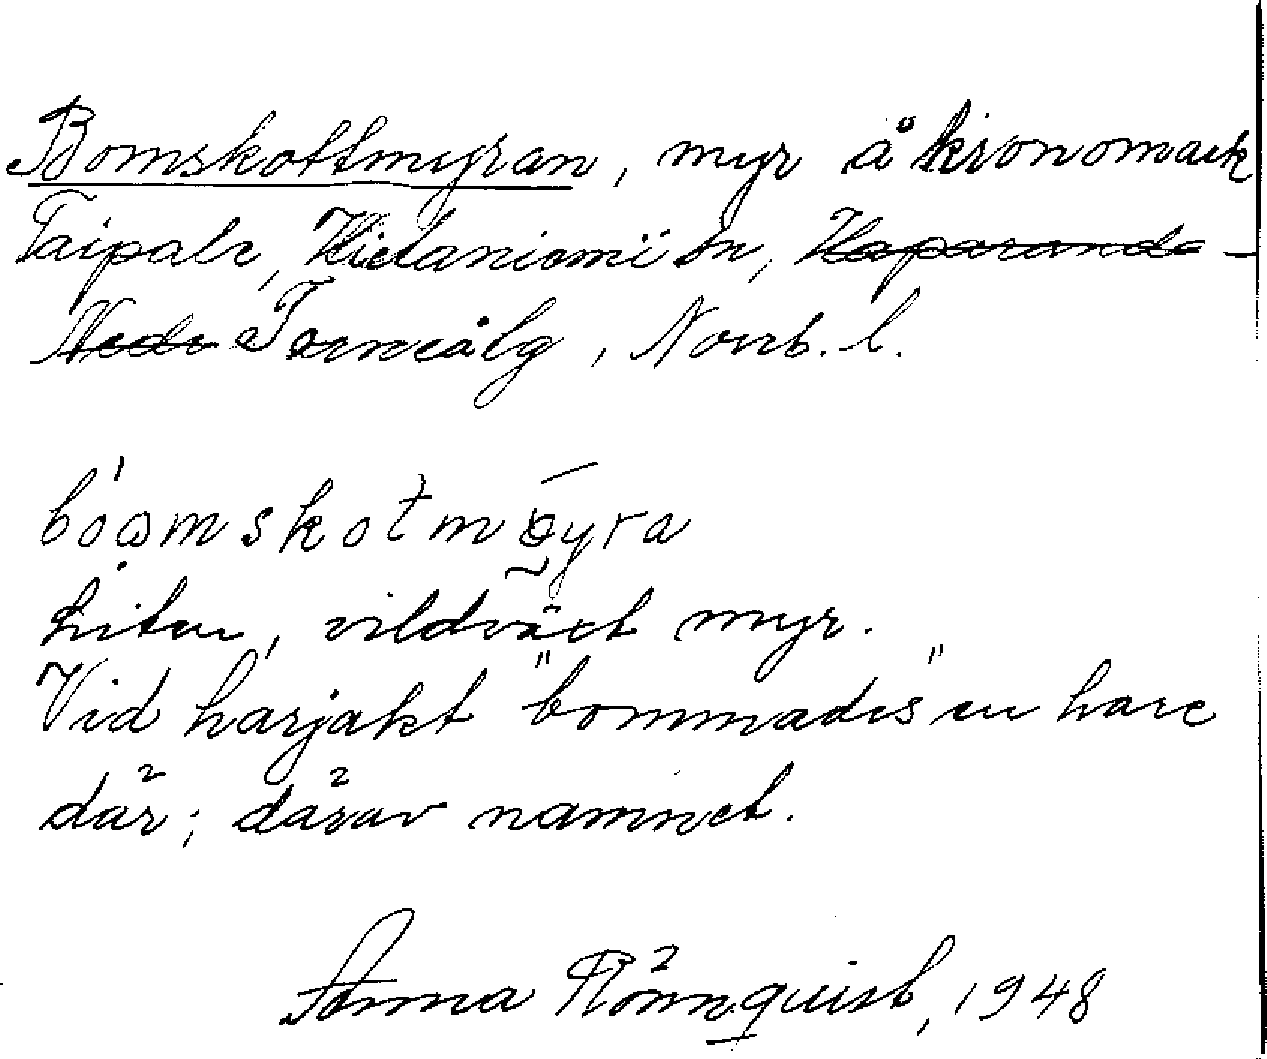 Bomskottmyran, myr å kronomark
Taipale, Hietaniemi sn, Haparanda -
Neder Torneålg, Norrb. l.
bóomskotmyra
Liten, vildväxt myr.
Vid harjakt "bommades" en hare
där; därav namnet.
Anna Rönnquist, 1948